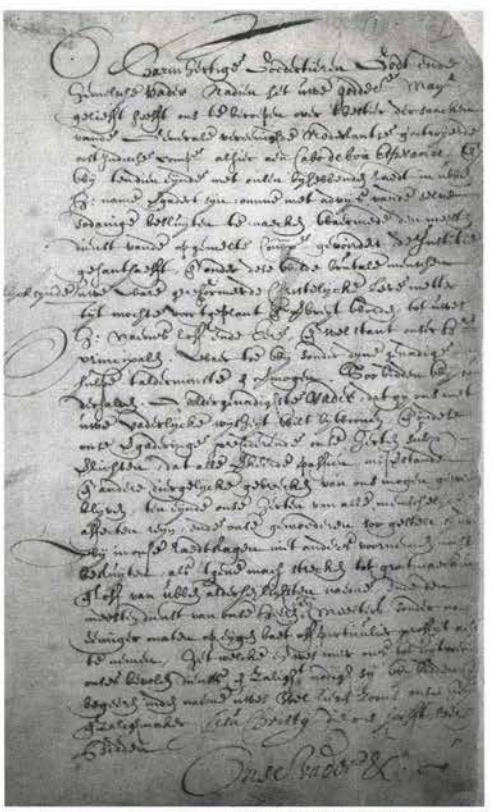 O Barmhertige Goedertieren Godt ende
Hemelsche Vader Nadien het uwe goddel: Mayt
gelieft heeft ons te beroepen over t bestier der saecken
vande Generale vereenighde Nederlantse geoctroyeerde
oostindische comp: alhier aen Cabo de boa Esperance, 
wy ten dien eynde met onsen byhebbenden raedt in uwen
H: name vergadert syn omme met advys vande selven
sodanige besluyten te maecken waermede den meesten
dienst vande opgemelte Comp: gevordert de Justitie
gehanthaeft, onder dese wilde brutale menschen
mogelyck synde uwe ware gereformeerde Christelycke leere metter
tyt mochte voortgeplant verbreyt worden, tot uwes
H: naems loff ende eere, welstant onser
principalen. Waer toe wy sonder uwe genadige
hulpe t alderminste vermogen Soo bidden wy
aldergenadighste Vader, dat gy ons met
uwe vaderlycke wysheyt wilt bywonen,
onse vergaderinge presiderende onse herten sulcx
verlichten, dat alle verkeerde passien misverstanden
andere diergelycke gebreecken van ons mogen geweert
blyven, ten eynde onse herten van alle menschel:
affecten reyn, ende onse gemoederen soo gestelt
wy in onse raedtslagen niet anders voornemen
besluyten, als t gene mach strecken tot grootmaeckingh
loff van uwen alderheylichsten name den
meesten dienst van onse Heeren Meesters sonder
eeniger maten op eygen baet off particulier profyt
te nemen, Het welcke
onses bevolen dienst salicht nodigh sy wy bidden
begeeren inden name uwes Soons
Salighmaker Jesu Christy die ons heeft leeren
bidden
Onse Vader &c: